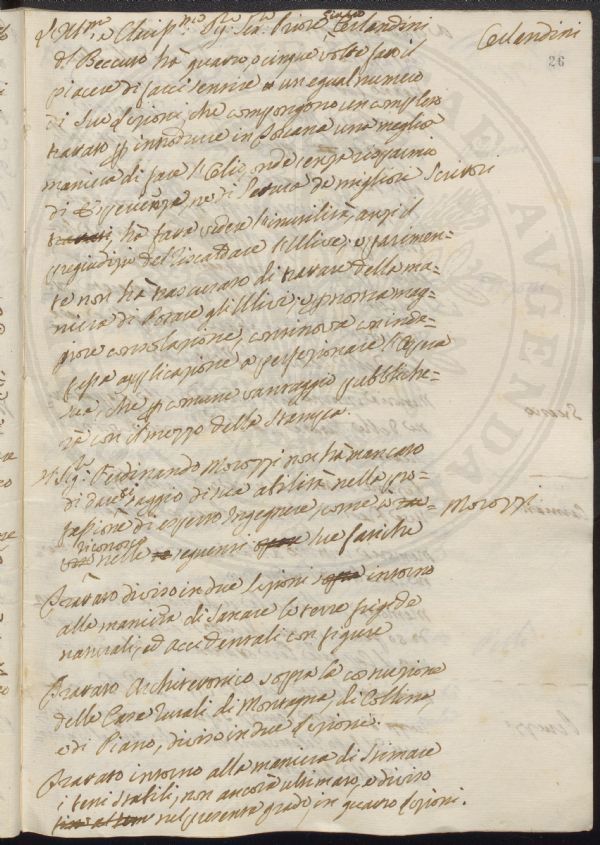 L'Ill.mo e Chiar.mo Sig. Priore Giulio Cerlandini
Cerlandini
26
del Beccuto ha quatro, o cinque volte fatto il
piacere di farci sentire un egual numero
di sue Lezioni, che compongono un completo
trattato p introdurre in Toscana una meglior
maniera di fare l'Olio, onde senza risparmio
di Esperienze, ne di lettura de migliori Scrittori
ha fatto veder l'inutilità anzi il
pregiudizio del riscaldare l'Ulive; e parimen=
te non ha trascurato di trattare della ma=
niera di Potare gl'Ulivi; e p nostra mag=
giore consolazione, continova con inde=
fessa applicazione a perfezionare l'Opera
sua, che p comune vantaggio pubbliche=
rà con il mezzo della Stampa.
Il Sig.r Ferdinando Morozzi non ha mancato
di dare saggio di sua abilità nella pro=
fessione di esperto Ingegnere, come si
Morozzi
riconosce
nelle seguenti sue fatiche
Trattato diviso in due lezioni intorno
alla maniera di sanare le terre frigide
naturali, ed accidentali con figure
Trattato Architettonico sopra la costruzione
delle Case rurali di Montagna, di Collina,
e di Piano, diviso in due lezione.
Trattato intorno alla maniera di Stimare
i beni stabili, non ancora ultimato, e diviso
nel presente grado in quattro lezioni.